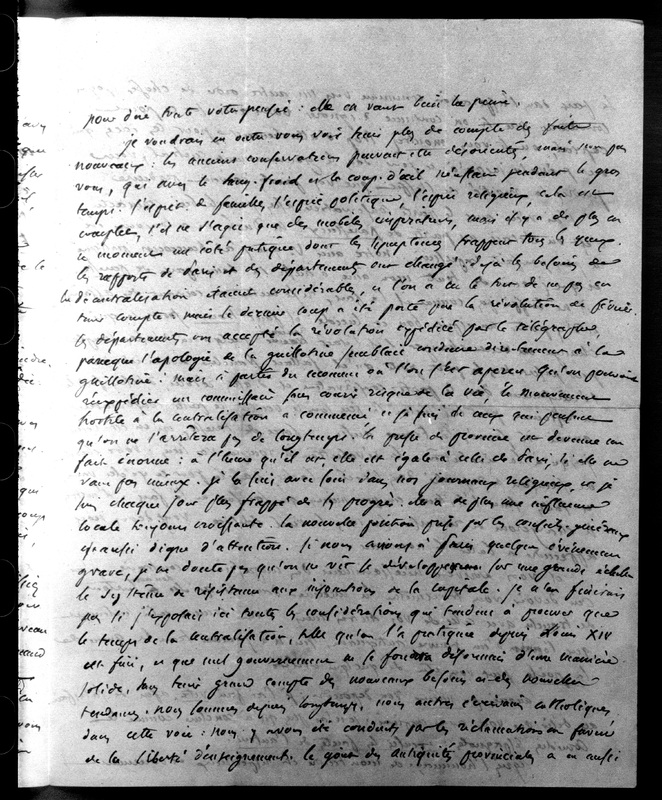 pour dire toute votre pensée : elle en vaut bien la peine.
je voudrais en outre vous voir tenir plus de compte des faits
nouveaux : les anciens conservateurs peuvent être désorientés, mais non pas
vous, qui avez le sang-froid et le coup d'œil pendant le gros
temps. l'esprit de famille, l'esprit politique, l'esprit religieux, cela est
complet, s'il ne s'agit que des mobiles inspirateurs, mais il y a de plus en
ce moment un côté pratique dont les symptômes frappent tous les yeux.
les rapports de Paris et des départements ont changé : déjà les besoins de
la décentralisation étaient considérables, et l'on a eu le tort de ne pas en
tenir compte : mais le dernier coup a été porté par la révolution de février.
les départements ont accepté la révolution expédiée par le télégraphe,
parceque l'apologie de la guillotine semblait conduire directement à la
guillotine : mais à partir du moment où l'on s'est aperçu qu'on pouvait
réexpédier un commissaire sans courir risque de la vie, le mouvement
hostile à la centralisation a commencé et je suis de ceux qui pensent
qu'on ne l'arrêtera pas de longtemps. la presse de province est devenue un
fait énorme : à l'heure qu'il est elle est égale à celle de Paris, si elle ne
vaut pas mieux. je la suis avec soin dans nos journaux religieux, et je
suis chaque jour plus frappé de ses progrès. elle a de plus une influence
locale toujours croissante. la nouvelle position prise par les conseils-généraux
est aussi digne d'attention. si nous avions à subir quelque événement
grave, je ne doute pas qu'on ne vît se développer sur une grande échelle
le système de résistance aux injonctions de la capitale. je n'en finirais
pas si j'exposais ici toutes les considérations qui tendent à prouver que
le temps de la centralisation, telle qu'on l'a pratiquée depuis Louis XIV
est fini, et que nul gouvernement ne se fondera désormais d'une manière
solide, sans tenir grand compte des nouveaux besoins et des nouvelles
tendances. nous sommes depuis longtemps, nous autres écrivains catholiques,
dans cette voie : nous y avons été conduits par les réclamations en faveur
de la liberté d'enseignement. le goût des antiquités provinciales a eu aussi